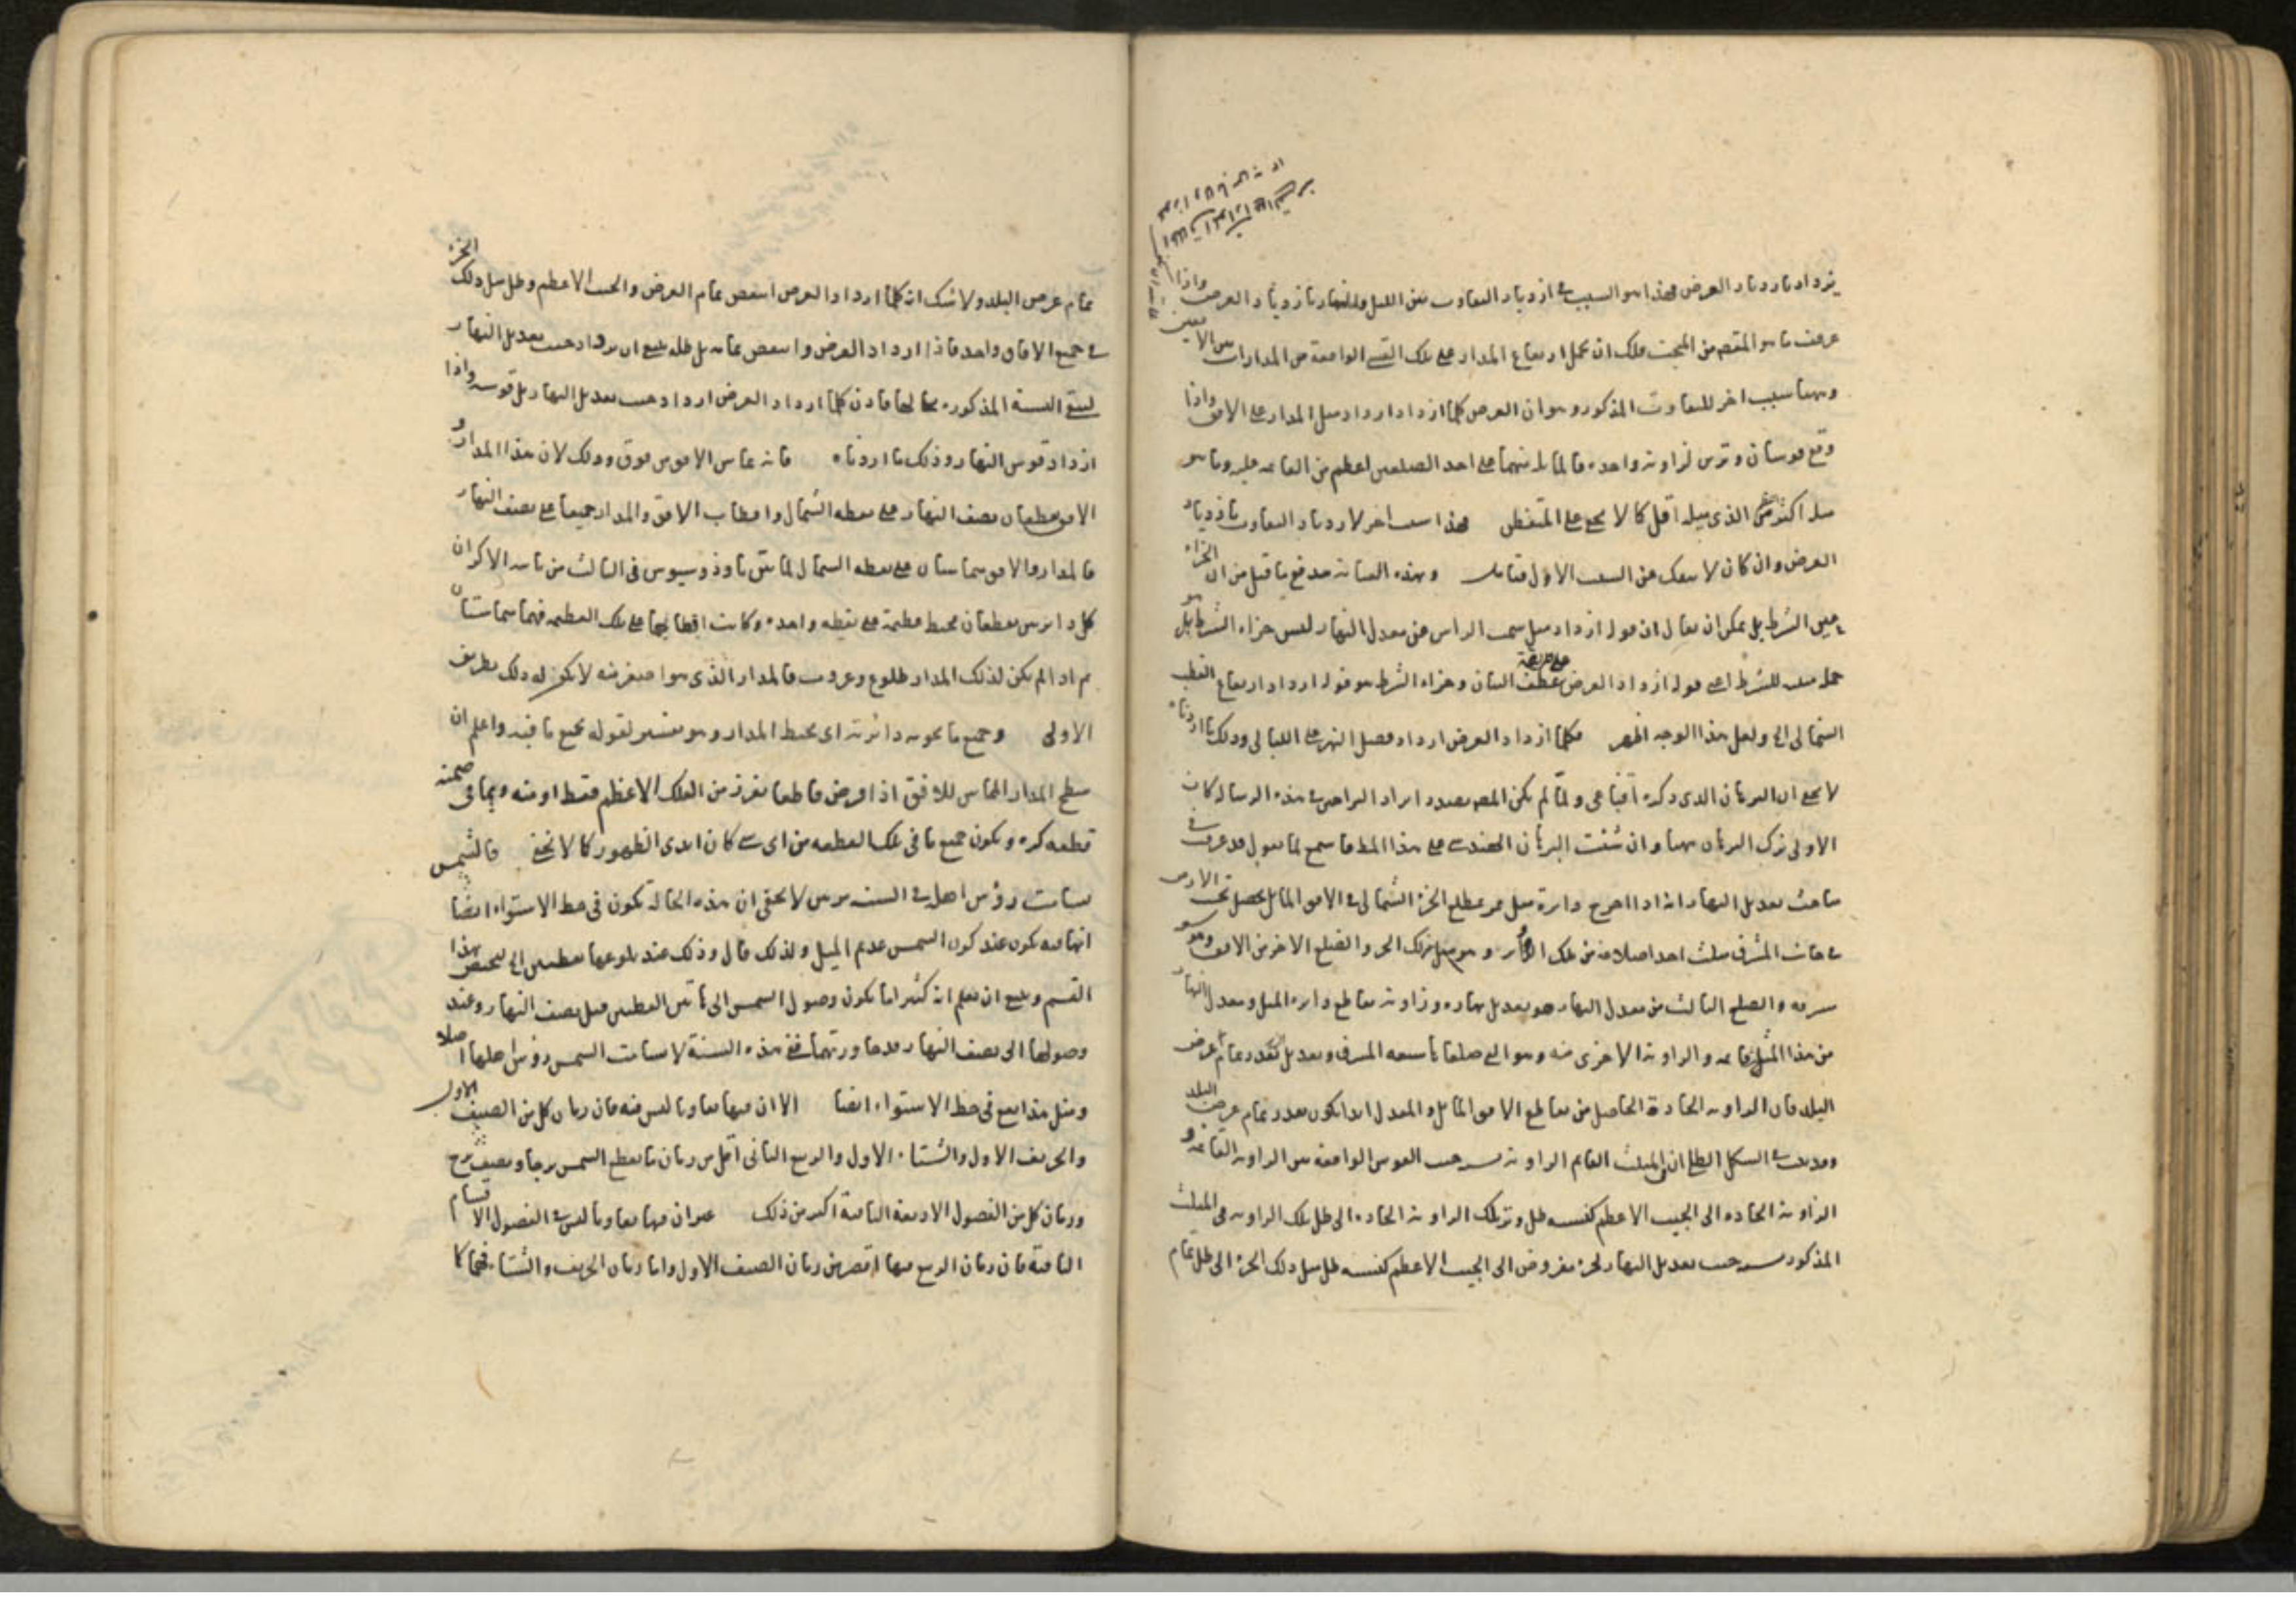 يزداد بازدياد العرض فهذا هو السبب في ازدياد التفاوت بين الليل والنهار بازدياد العرض واذا
عرفت ما هو المقصود من المبحث فلك ان تحمل ارتفاع المدار على تلك القسي الواقعة من المدارات بين الافقين
وههنا سبب اخر للتفاوت المذكور وهو ان العرض كلما ازداد ازداد ميل المدار على الافق واذا
وقع قوسان وترين لزاوية واحدة فالمائلة منهما على احد الضلعين اعظم من القائمة عليه وما هو
ميله اكثر من الذي ميله اقل كما لا يخفى على المتفطن فهذا سبب اخر لازدياد التفاوت بازدياد
العرض وان كان لا ينفك عن السبب الاول فتامل وبهذه العناية يندفع ما قيل من ان الجزاء
عين الشرط بل يمكن ان يقال ان قوله ازداد ميل سمت الراس عن معدل النهار ليس جزاء الشرط بل هو
جملة مبينة للشرط اعني قوله ازداد العرض عطف البيان وجزاء الشرط هو قوله ازداد ارتفاع القطب
الشمالي الخ ولعل هذا الوجه اظهر فكلما ازداد العرض ازداد فضل النهر على الليالي وذلك ما اردناه
لا يخفى ان البرهان الذي ذكره اقناعي ولما لم يكن المصنف بصدد ايراد البراهين في هذه الرسالة كان
الاولى ترك البرهان ههنا وان شئت البرهان الهندسي على هذا المط فاسمع لما نقول قد عرف في
مباحث تعديل النهار انه اذا اخرج دائرة ميل تمر بمطلع الجزء الشمالي في الافق المائل يحصل تحت الارض
في جانب المشرق مثلث احد اضلاعه من تلك الدائر وهو ميل ذلك الجزء والضلع الاخر من الافق وهو
سعة مشرقه والضلع الثالث من معدل النهار هو تعديل نهاره وزاوية تقاطع دائرة الميل ومعدل النهار
من هذا المثلث قائمة والزاوية الاخرى منه وهو التي ضلعاها سعة المشرق وتعديل النهار بقدر تمام عرض
البلد فان الزاوية الحادة الحاصل من تقاطع الافق المائل والمعدل ابدا يكون بقدر تمام عرض البلد
وقد ثبت في الشكل الظلي ان في المثلث القائم الزاوية نسبة جيب القوس الواقعة بين الزاوية القائمة و
الزاوية الحادة الى الجيب الاعظم كنسبة ظل وتر تلك الزاوية الحادة الى ظل تلك الزاوية في المثلث
المذكور نسبة جيب تعديل النهار لجزء مفروض الى الجيب الاعظم كنسبة ظل ميل ذلك الجزء الى ظل تمام
تمام عرض البلد ولا شك ان كلما ازداد العرض انتقص تمام العرض والجيب الاعظم وظل ميل ذلك الجزء
في جميع الافاق واحد فاذا ازداد العرض وانتقص تمامه بل ظله ينبغي ان يزداد جيب تعديل النهار
لتبقى النسبة المذكورة بحالها فاذن كلما ازداد العرض ازداد جيب تعديل النهار بل قوسه واذا
ازداد قوس النهار وذلك ما اردناه فانه يماس الافق من فوق وذلك لان هذا المدار و
الافق يقطعان نصف النهار على نقطة الشمال واقطاب الافق والمدار جميعا على نصف النهار
فالمدار والافق متماسان على نقطة الشمال لما بين ثاوذوسيوس في الثالث من ثانية الاكر ان
كل دائرتين يقطعان محيط عظيمة على نقطة واحدة وكانت اقطابهما على تلك العظيمة فهما متماستان
ثم اذا لم يكن لذلك المدار طلوع وغروب فالمدار الذي هو اصغر منه لا يكون له ذلك بطريق
الاولى وجميع ما يحويه دائرته اي محيط المدار وهو تفسير لقوله بجميع ما فيه واعلم ان
سطح المدار المماس للافق اذا فرض قاطعا يفرز من الفلك الاعظم فقط او منه ومما في ضمنه
قطعة كرة ويكون جميع ما في تلك القطعة من اي شيء كان ابدي الظهور كما لا يخفى فالشمس
تسامت رؤس اهلها في السنة مرتين لا يخفى ان هذه الحالة تكون في خط الاستواء ايضا
انها فيه يكون عند كون الشمس عديم الميل ولذلك قال وذلك عند بلوغها نقطتين الخ ليختص بهذا
القسم وينبغي ان تعلم ان كثيرا ما يكون وصول الشمس الى هاتين النقطتين قبل نصف النهار وعند
وصولها الى نصف النهار قدجاوزتهما ففي هذه السنة لا تسامت الشمس رؤس اهلها اصلا
ومثل هذا يقع في خط الاستواء ايضا الا ان فيها تفاوتا ليس فيه فان زمان كل من الصيف الاول
والخريف الاول والشتاء الاول والربيع الثاني اقل من زمان ما يقطع الشمس برجا ونصف برج
وزمان كل من الفصول الاربعة الباقية اكبر من ذلك غير ان فيها تفاوتا ليس في الفصول الاقسام
الباقية فان زمان الربيع فيها اقصر من زمان الصيف الاول واما زمان الخريف والشتاء فهما كا